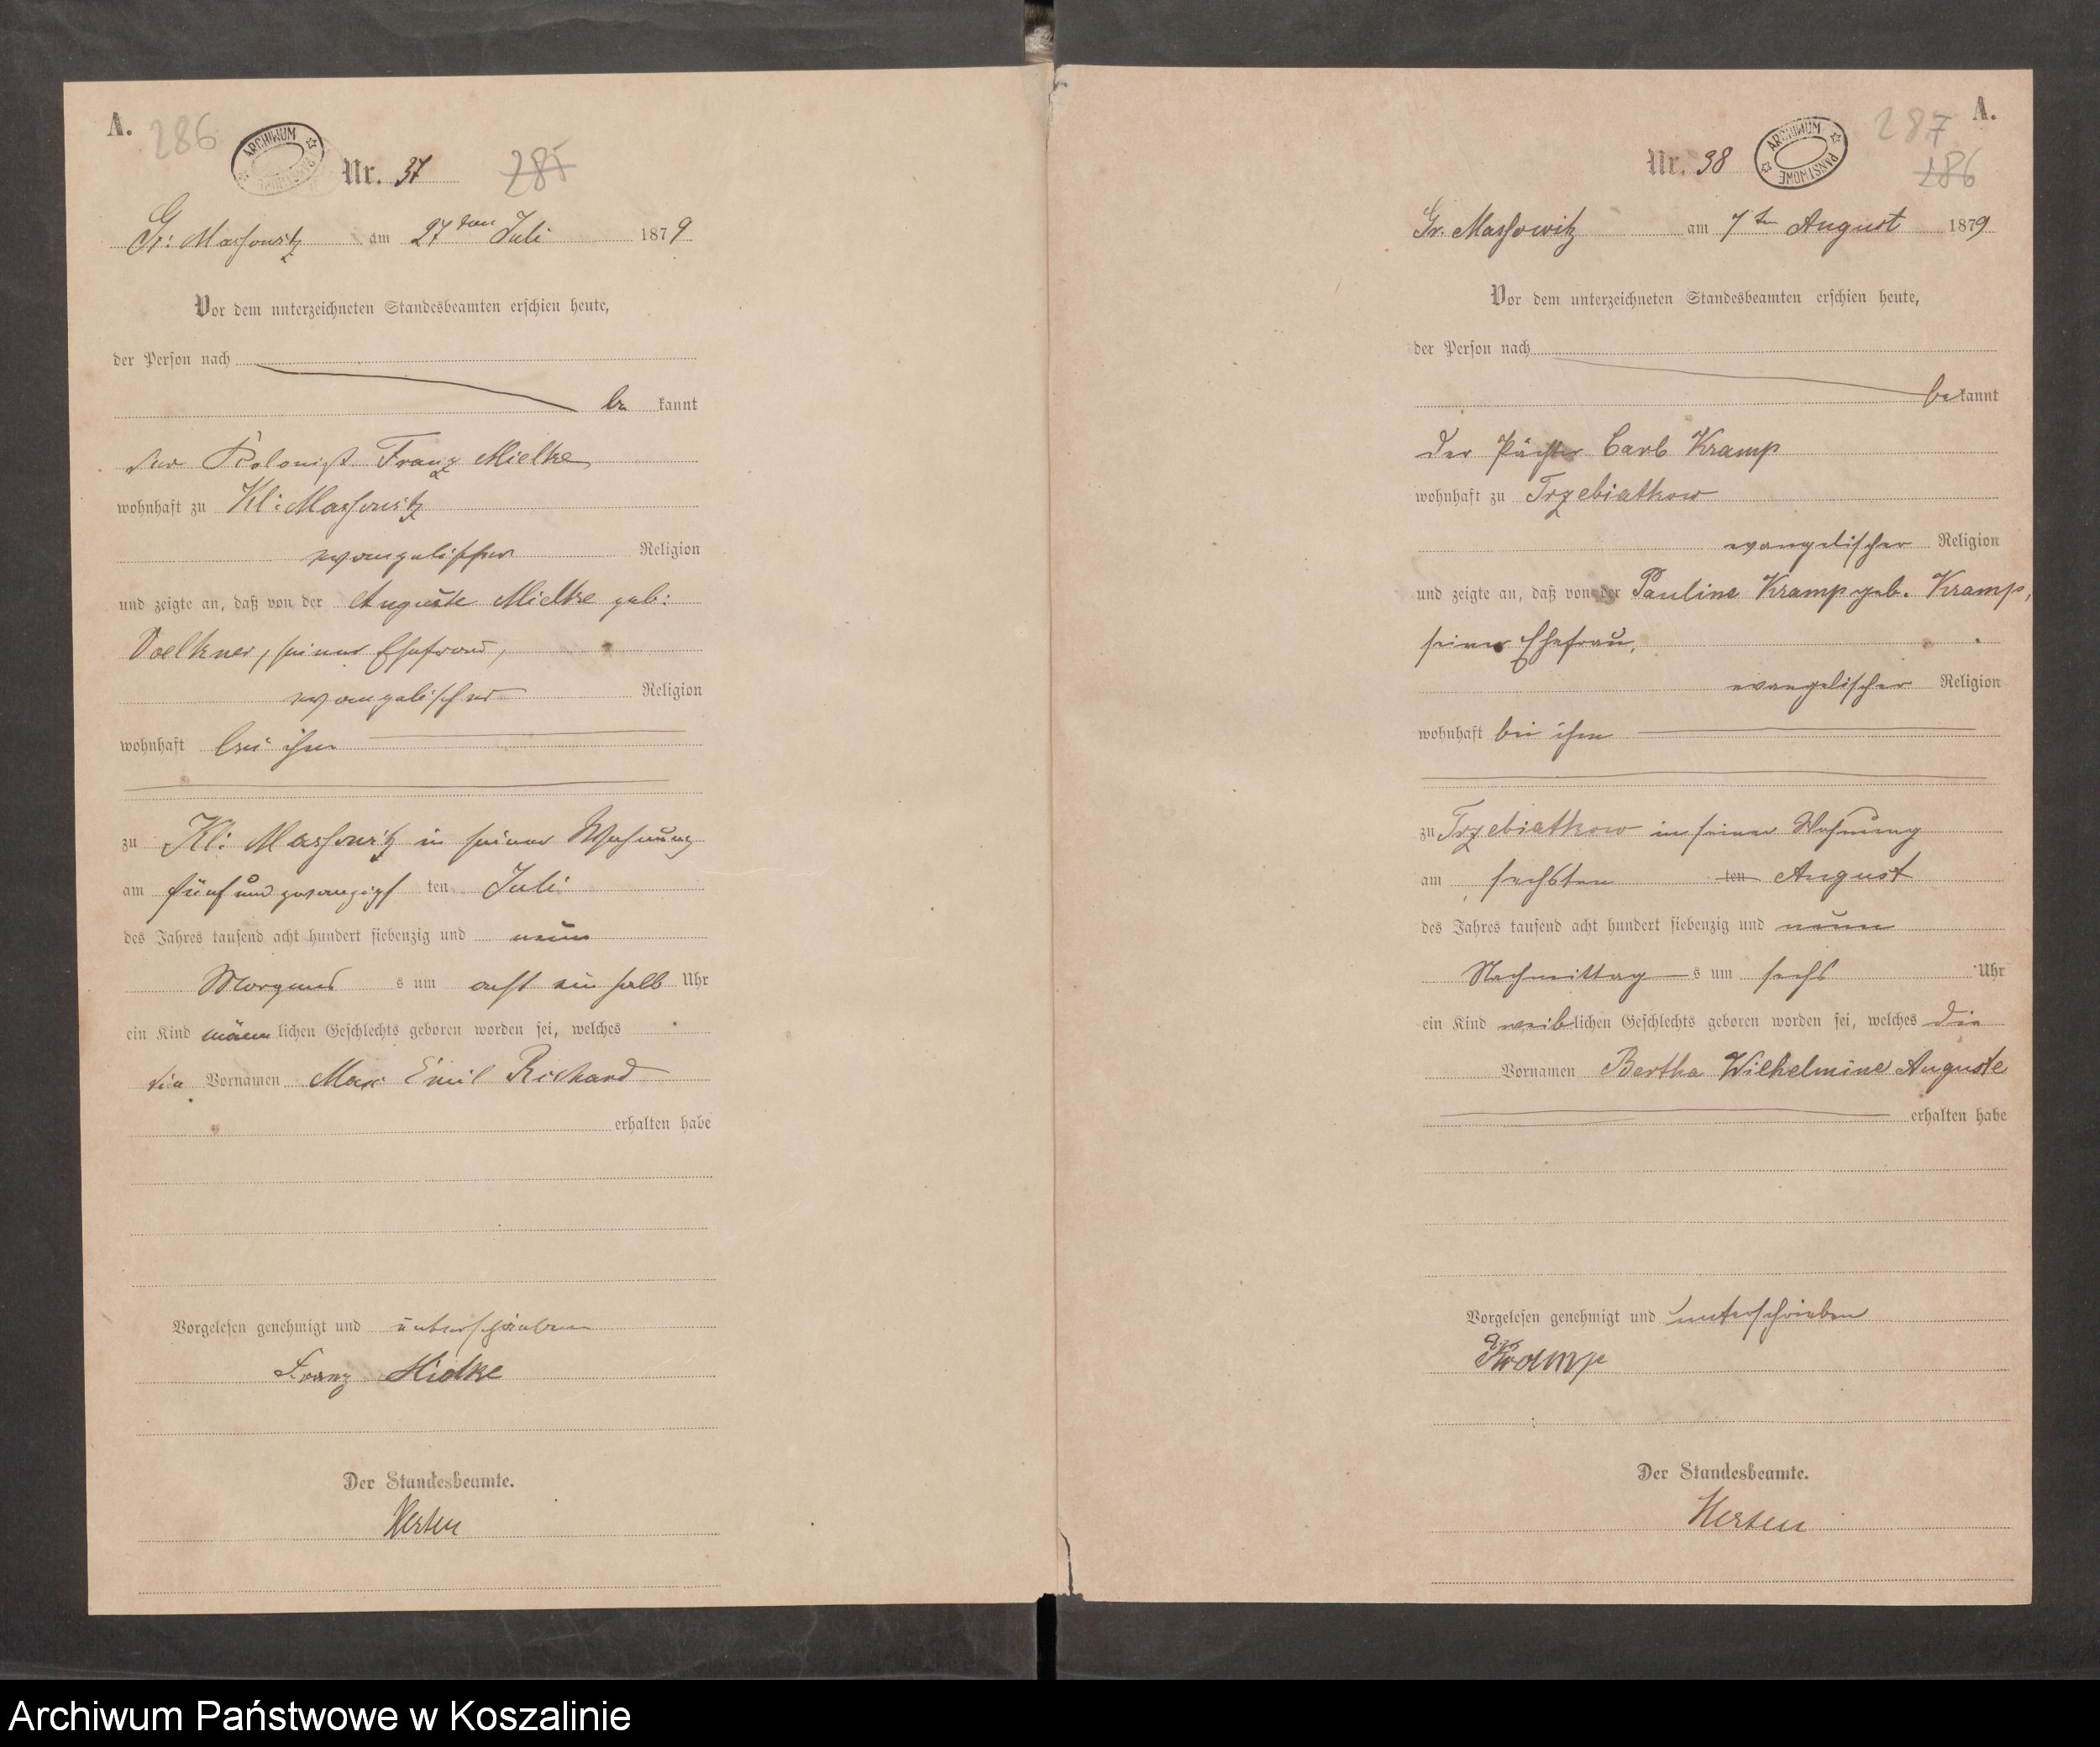 A.
286
ARCHIWUM
Nr. 37
287
Gr: Massowitz am 27ten Juli 1879
Vor dem unterzeichneten Standesbeamten erschien heute,
der Person nach
be kannt
der Kolonist Franz Mielke
wohnhaft zu Kl: Massowitz
evangelischer Religion
und zeigte an, daß von der Auguste Mielke geb:
Voelkner, seiner Ehefrau,
evangelischer Religion
wohnhaft bei ihm
zu Kl: Massowitz in seiner Wohnung
am fünf und zwanzigs ten Juli
des Jahres tausend acht hundert siebenzig und neun
Morgens s um acht ein halb Uhr
ein Kind männlichen Geschlechts geboren worden sei, welches
die Vornamen Max Emil Richard
erhalten habe
Vorgelesen genehmigt und unterschrieben
Franz Mielke
Der Standesbeamte.
A.
287
286
Nr. 38
ARCHIWUM PAŃSTWOWE
Gr. Massowitz am 7ten August 1879
Vor dem unterzeichneten Standesbeamten erschien heute,
der Person nach
bekannt
der Pächter Carl Kramp
wohnhaft zu Trzebiatkow
evangelischer Religion
und zeigte an, daß von der Pauline Kramp geb. Kramp,
seiner Ehefrau,
evangelischer Religion
wohnhaft bei ihm
zu Trzebiatkow in seiner Wohnung
am sechsten ten August
des Jahres tausend acht hundert siebenzig und neun
Nachmittag s um sechs Uhr
ein Kind weiblichen Geschlechts geboren worden sei, welches die
Vornamen Bertha Wilhelmine Auguste
erhalten habe
Vorgelesen genehmigt und unterschrieben
Kramp
Der Standesbeamte.
Archiwum Państwowe w Koszalinie